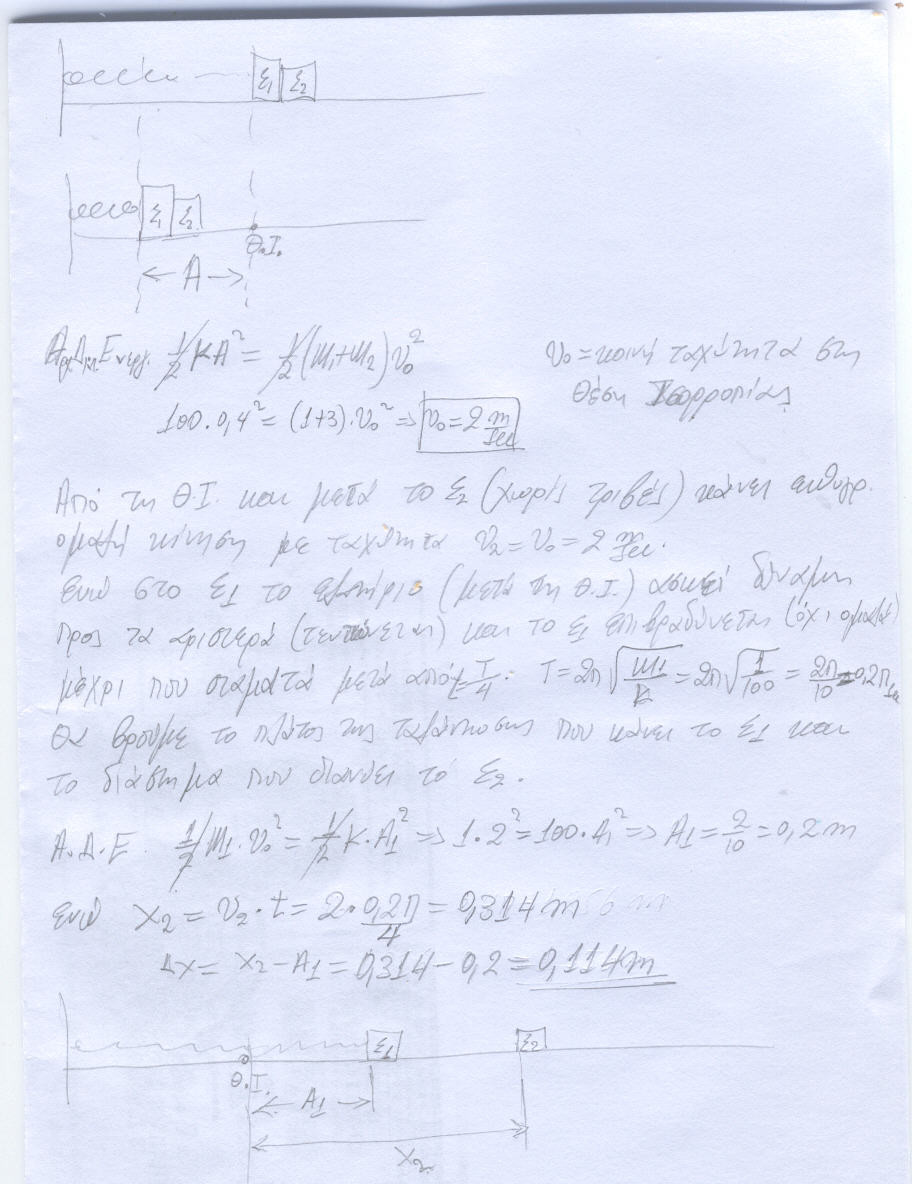 Σ1 Σ2
Σ1 Σ2
Θ.Ι.
A
Αρχ.Δια.Ενεργ. 1/2 KA² = 1/2 (m1+m2) υ0²
υ0 = κοινή ταχύτητα στη
θέση Ισορροπίας
100·0,4² = (1+3)·υ0² => υ0 = 2 m/sec
Από τη Θ.Ι. και μετά το Σ2 (χωρίς τριβές) κάνει ευθυγρ.
ομαλή κίνηση με ταχύτητα υ2 = υ0 = 2 m/sec.
ενώ στο Σ1 το ελατήριο (μετά τη Θ.Ι.) ασκεί δύναμη
προς τα αριστερά (τεντώνεται) και το Σ1 επιβραδύνεται (όχι ομαλά)
μέχρι που σταματά μετά από t=T/4. T = 2π√(m1/k) = 2π√(1/100) = 2π/10 = 0,2π sec
Θα βρούμε το πλάτος της ταλάντωσης που κάνει το Σ1 και
το διάστημα που διανύει το Σ2.
Α.Δ.Ε. 1/2 m1·υ0² = 1/2 K·A1² => 1·2² = 100·A1² => A1 = 2/10 = 0,2 m
ενώ x2 = υ2·t = 2·0,2π/4 = 0,314 m
Δx = x2 - A1 = 0,314 - 0,2 = 0,114 m
Σ1 Σ2
Θ.Ι.
A1
x2